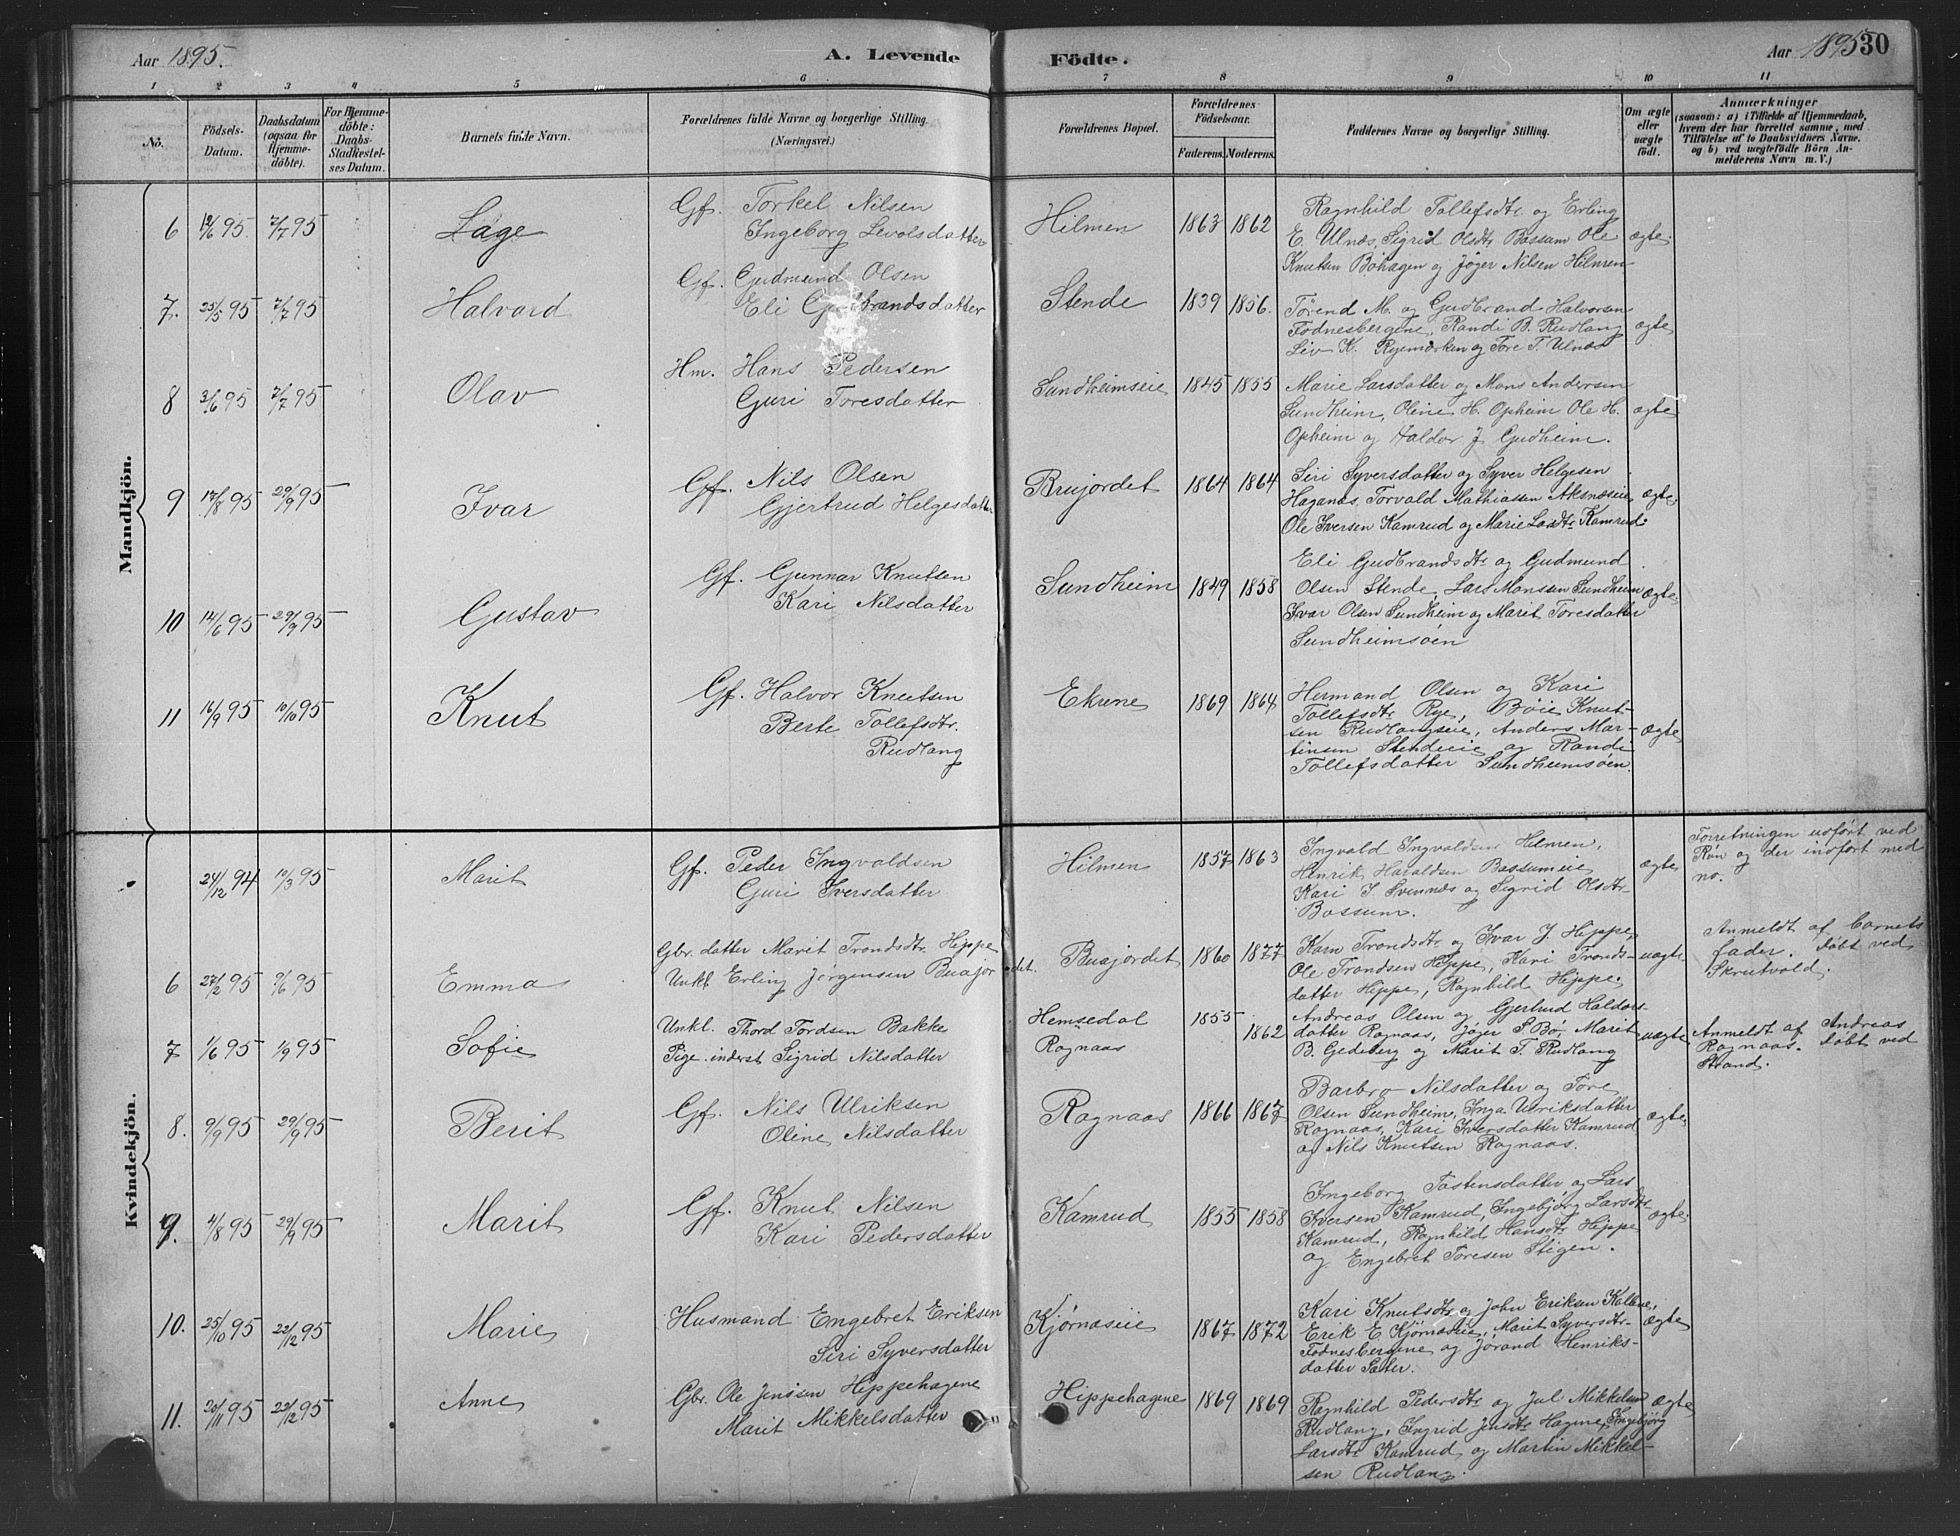 Aar 1895.
A. Levende Födte.
Aar 1895
30
1 2 3 4 5 6 7 8 9 10 11
No.
Födsels-Datum.
Daabsdatum (ogsaa for Hjemmedöbte).
For Hjemmedöbte: Daabs-Stadfæstelses Datum.
Barnets fulde Navn.
Forældrenes fulde Navne og borgerlige Stilling. (Næringsvei.)
Forældrenes Bopæl.
Forældrenes Födselsaar.
Faderens. Moderens.
Faddernes Navne og borgerlige Stilling.
Om ægte eller uægte födt.
Anmærkninger
(saasom: a) i Tilfælde af Hjemmedaab, hvem der har forrettet samme, med Tilföielse af to Daabsvidners Navne. og b) ved uægtefödte Börn Anmelderens Navn m. V.)
Mandkjön.
6 12/6 95 7/7 95 Låge
Gf. Torkel Nilsen
Ingeborg Levolsdatter
Hilmen 1863 1862
Ragnhild Tollefsdtr og Erling
E. Ulnæs, Sigrid Olsdtr Bassum Ole
Knutsen Bøhagen og Jøger Nilsen Hilmen
ægte
7. 25/5 95 7/7 95 Halvard
Gf. Gudmund Olsen
Eli Gudbrandsdatter
Stende 1839 1856.
Tørend M. og Gudbrand Halvorsen
Fodnesbergene, Randi B. Rudlang
Liv K. Ryemarken og Tore T. Ulnæs
ægte
8 3/6 95 7/7 95 Olav
Hm. Hans Pedersen
Guri Toresdatter
Sundheimseie 1845 1855
Marie Larsdatter og Mons Andersen
Sundheim, Oline H. Opheim Ole H.
Opheim og Haldor J. Gudheim.
ægte
9 17/8 95 29/9 95 Ivar
Gf. Nils Olsen
Gjertrud Helgesdatter
Brujordet 1864 1864
Siri Syversdatter og Syver Helgesen
Haganæs, Torvald Mathiassen Aksnæseie
Ole Iversen Kamrud og Marie Larsdtr Kamrud.
ægte
10 14/6 95 29/9 95 Gustav
Gf. Gunnar Knutsen
Kari Nilsdatter
Sundheim 1849 1858
Eli Gudbrandsdtr og Gudmund
Olsen Stende, Lars Monssen Sundheim
Ivar Olsen Sundheim og Marit Toresdatter
Sundheimsøen
ægte
11 16/9 95 10/10 95 Knut
Gf. Halvor Knutsen
Berte Tollefsdtr.
Rudlang
Ekrene 1869 1864
Hermand Olsen og Kari
Tollefsdtr Rye, Bøie Knut-
sen Rudlangseie, Anders Mar-
tinsen Stendeeie og Randi
Tollefsdatter Sundheimsøen.
ægte
Kvindekjön.
24/12 94 10/3 95 Marit
Gf. Peder Ingvaldsen
Guri Iversdatter
Hilmen 1857 1863
Ingvald Ingvaldsen Hilmen,
Henrik Haraldsen Bassumeie
Kari I. Svennæs og Sigrid Olsdtr
Bassum.
ægte
Forretningen udført ved
Røn og der indført med
no.
6 27/2 95 9/6 95 Emma
Gbr. datter Marit Trondsdtr Hippe
Unkl Erling Jørgensen Buajordet.
Buajordet 1860 1877
Karn Trondsdtr og Ivar J. Hippe,
Ole Trondsen Hippe, Kari Tronds-
datter Hippe, Ragnhild Hippe.
uægte
Anmeldt af barnets
fader. døbt ved
Skrutvold.
7 1/6 95 1/9 95 Sofie
Unkl. Thord Tordsen Bakke
Pige inderst Sigrid Nilsdatter
Hemsedal 1855
Rognaas 1862
Andreas Olsen og Gjertrud Haldors-
datter Rognaas, Jøger S. Bø, Marit
B. Gedeberg og Marit T. Rudlang
uægte
Anmeldt af Andreas
Rognaas. døbt ved
Strand.
8. 9/9 95 29/9 95 Berit
Gf. Nils Ulriksen
Oline Nilsdatter
Rognaas 1866 1867
Barbro Nilsdatter og Tore
Olsen Sundheim, Inga Ulriksdatter
Rognaas, Kari Iversdatter Kamrud
og Nils Knutsen Rognaas.
ægte
9. 4/8 95 29/9 95 Marit
Gf. Knut Nilsen
Kari Pedersdatter
Kamrud 1855 1858
Ingeborg Tostensdatter og Lars
Iversen Kamrud, Ingebjørg Larsdtr
Kamrud, Ragnhild Hansdtr Hippe
og Engebret Toresen Stigen.
ægte
10. 25/10 95 22/12 95 Marie
Husmand Engebret Eriksen
Siri Syversdatter
Kjørnaseie 1867 1872
Kari Knutsdtr og John Eriksen Kollene,
Erik E. Kjørnaseie, Marit Syversdtr
Fodnesbergene og Jørand Henriks-
datter Sæter.
ægte
11. 20/11 95 22/12 95 Anne
Gbr. Ole Jenssen Hippehagene
Marit Mikkelsdatter
Hippehagene 1869 1869
Ragnhild Pedersdtr og Jul Mikkelsen
Rudlang, Ingrid Jensdtr Hagene, Ingebjørg
Larsdtr Kamrud og Martin Mikkel-
sen Rudlang.
ægte